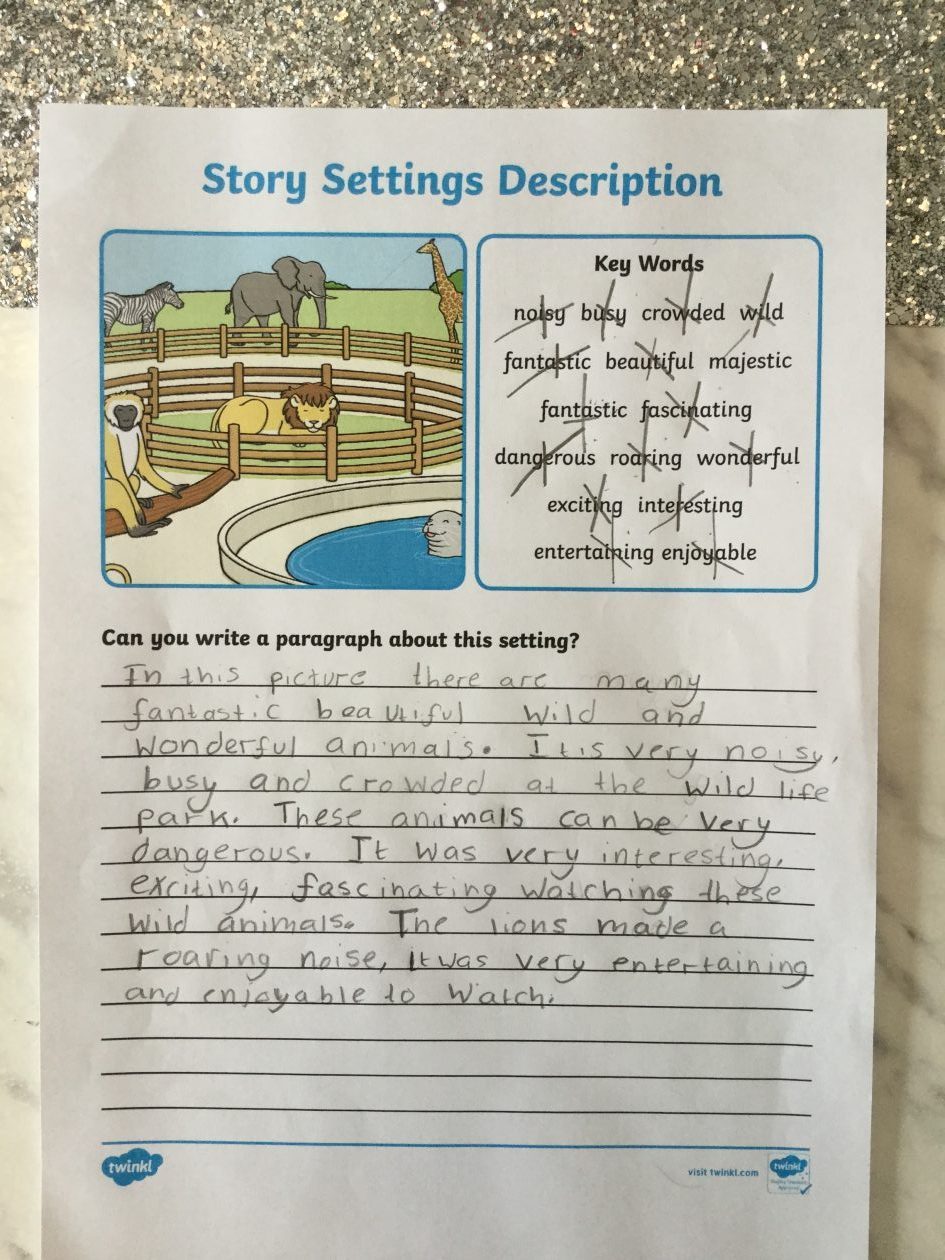 Story Settings Description
Key Words
noisy busy crowded wild
fantastic beautiful majestic
fantastic fascinating
dangerous roaring wonderful
exciting interesting
entertaining enjoyable
Can you write a paragraph about this setting?
In this picture there are many
fantastic beautiful wild and
wonderful animals. It is very noisy,
busy and crowded at the wild life
park. These animals can be very
dangerous. It was very interesting,
exciting, fascinating watching these
wild animals. The lions made a
roaring noise, it was very entertaining
and enjoyable to watch.
twinkl
visit twinkl.com
twinkl